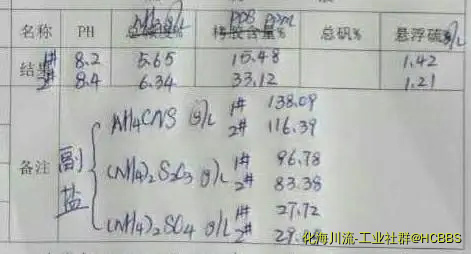 名称 PH NH3 g/L PDS ppm 总矾% 悬浮硫g/L
结果 1# 8.2 5.65 15.48 1.42
2# 8.4 6.34 33.12 1.21
备注 副盐
NH4CNS g/L 1# 138.09
2# 116.39
(NH4)2S2O3 g/L 1# 96.78
2# 83.38
(NH4)2SO4 g/L 1# 27.72
2# 29.
化海川流-工业社群@HCBBS